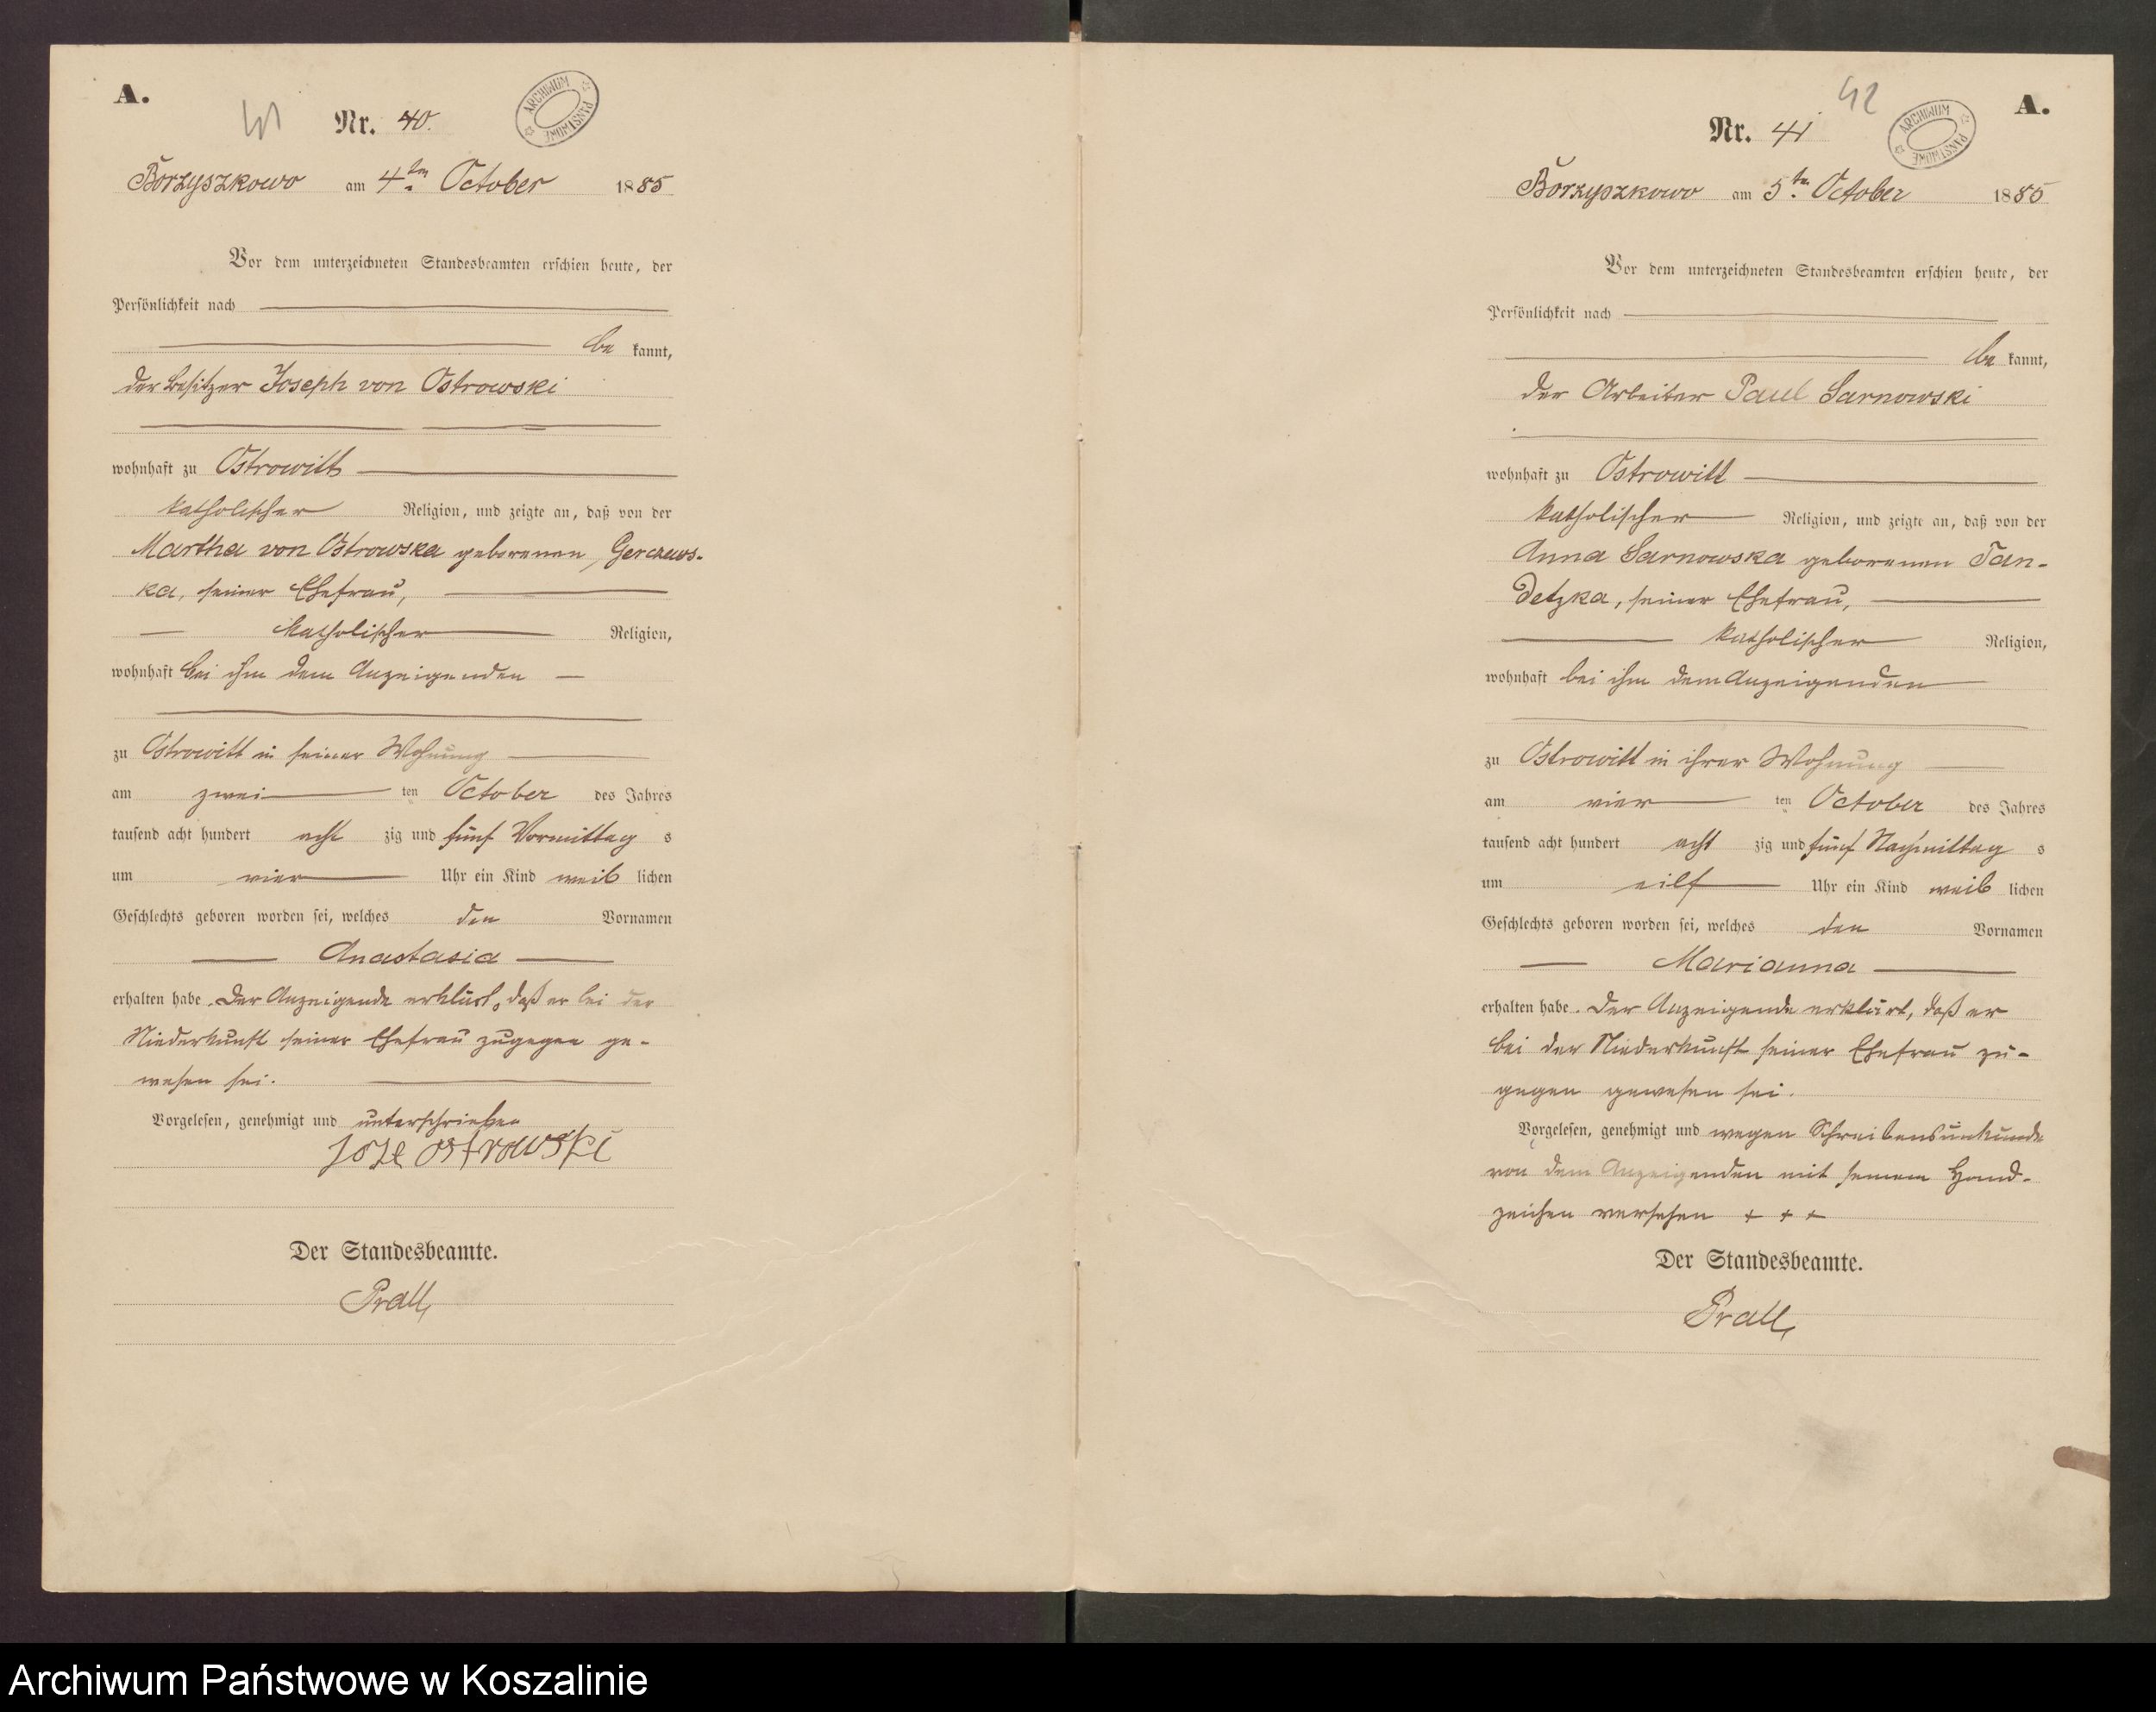 A.
41
Nr. 40.
ARCHIWUM PAŃSTWOWE
Borzyszkowo am 4ten October 1885
Vor dem unterzeichneten Standesbeamten erschien heute, der
Persönlichkeit nach
be kannt,
der Besitzer Joseph von Ostrowski
wohnhaft zu Ostrowitt
katholischer Religion, und zeigte an, daß von der
Martha von Ostrowska geborenen Gerczews-
ka, seiner Ehefrau,
katholischer Religion,
wohnhaft bei ihm dem Anzeigenden
zu Ostrowitt in seiner Wohnung
am zwei ten October des Jahres
tausend acht hundert acht zig und fünf Vormittag s
um vier Uhr ein Kind weib lichen
Geschlechts geboren worden sei, welches den Vornamen
Anastasia
erhalten habe. Der Anzeigende erklärt, daß er bei der
Niederkunft seiner Ehefrau zugegen ge-
wesen sei.
Vorgelesen, genehmigt und unterschrieben
Joze ostrowski
Der Standesbeamte.
Prall
42
A.
Nr. 41
ARCHIWUM PAŃSTWOWE
Borzyszkowo am 5ten October 1885
Vor dem unterzeichneten Standesbeamten erschien heute, der
Persönlichkeit nach
be kannt,
der Arbeiter Paul Sarnowski
wohnhaft zu Ostrowitt
katholischer Religion, und zeigte an, daß von der
Anna Sarnowska geborenen Tan-
detzka, seiner Ehefrau,
katholischer Religion,
wohnhaft bei ihm dem Anzeigenden
zu Ostrowitt in ihrer Wohnung
am vier ten October des Jahres
tausend acht hundert acht zig und fünf Nachmittag s
um eilf Uhr ein Kind weib lichen
Geschlechts geboren worden sei, welches den Vornamen
Marianna
erhalten habe. Der Anzeigende erklärt, daß er
bei der Niederkunft seiner Ehefrau zu-
gegen gewesen sei.
Vorgelesen, genehmigt und wegen Schreibensunkunde
von dem Anzeigenden mit seinem Hand-
zeichen versehen + + +
Der Standesbeamte.
Prall
Archiwum Państwowe w Koszalinie